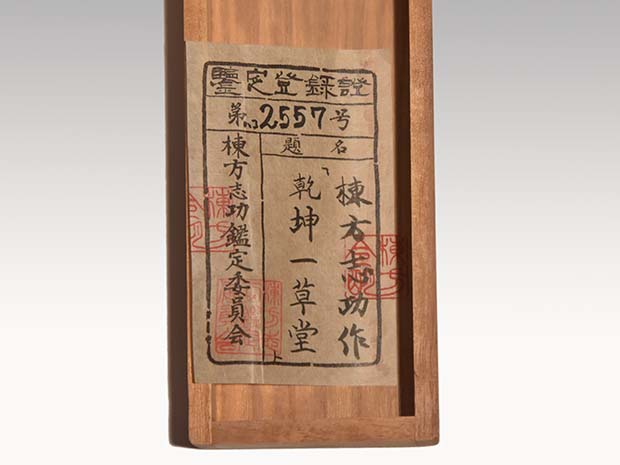 鑒定登録證
第ハ3 2557号
題名
棟方志功作
「乾坤一草堂」
棟方志功鑑定委員会